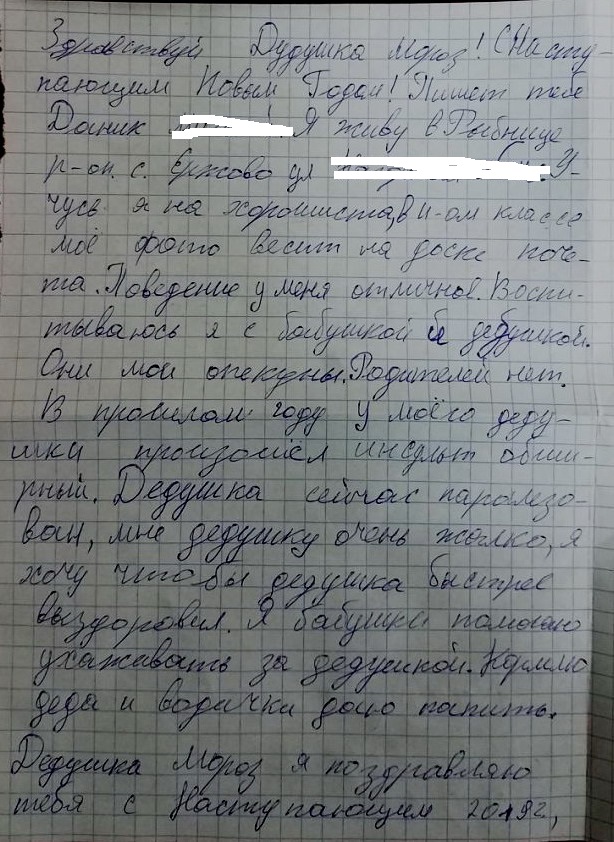 Здравствуй Дудушка Мороз! С Насту-
пающим Новым Годом! Пишет тебе
Даник Я живу в Рыбнице
р-он. с. Ержово ул У-
чусь я на хорошиста, в 4-ом классе
моё фото весит на доске поче-
та. Поведение у меня отличное. Воспи-
тываюсь я с бабушкой и дедушкой.
Они мои опекуны. Родителей нет.
В прошлом году у моего деду-
шки произошёл инсульт обши-
рный. Дедушка сейчас парализо-
ван, мне дедушку очень жалко, я
хочу чтобы дедушка быстрее
выздоровел. Я бабушки помогаю
ухаживать за дедушкой. Кормлю
деда и водички даю папить.
Дедушка Мороз я поздравляю
тебя с Наступающим 2019г,